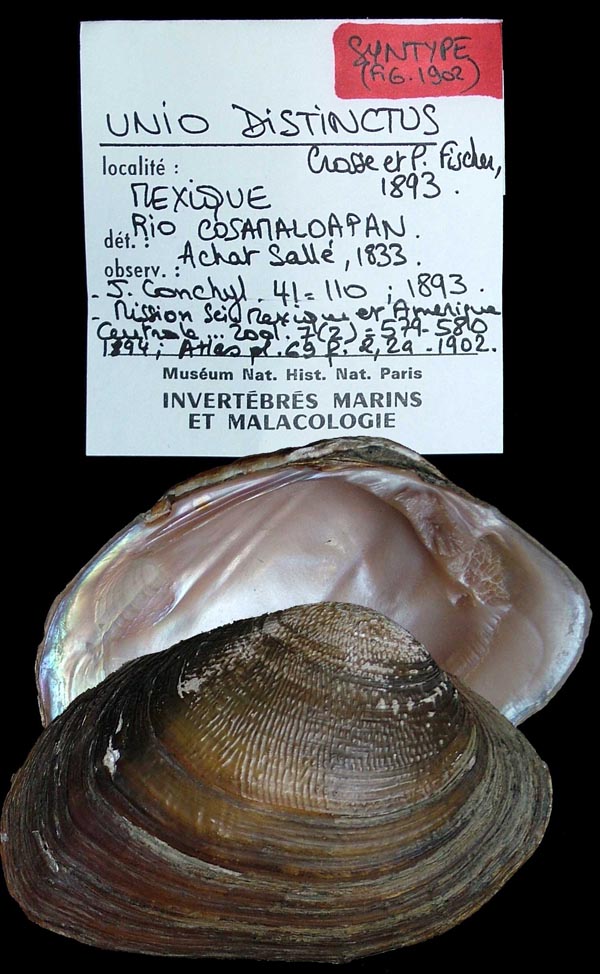 SYNTYPE
(FIG. 1902)
UNIO DISTINCTUS
localité : Crosse et P. Fischer,
1893.
MEXIQUE
RIO COSAMALOAPAN.
dét. :
Achat Sallé, 1833.
observ. :
- J. Conchyl. 41 = 110 ; 1893.
- Mission Sci. Mexique et Amérique
Centrale... Zool. 7(2) = 579-580
1894; Atlas pl. 69 f. 2, 2a - 1902.
Muséum Nat. Hist. Nat. Paris
INVERTÉBRÉS MARINS
ET MALACOLOGIE